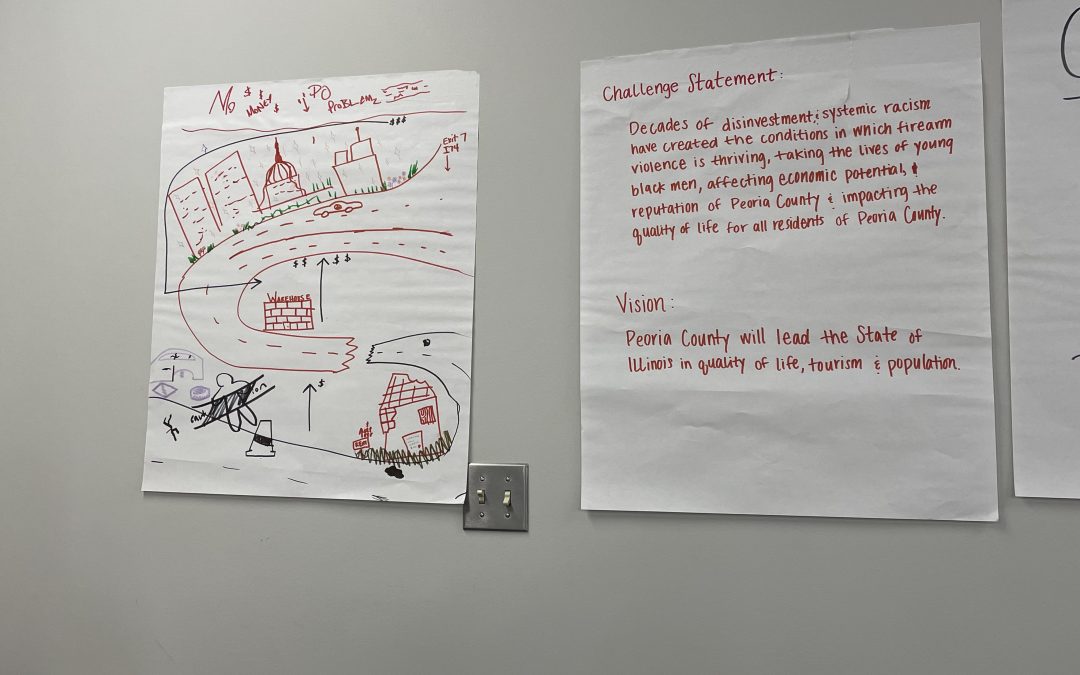 No $ $ Money $ $
PO
Problemz
$$$
Exit 7
I74
$$ $$
Warehouse
$
Challenge Statement:
Decades of disinvestment & systemic racism
have created the conditions in which firearm
violence is thriving, taking the lives of young
black men, affecting economic potential, &
reputation of Peoria County & impacting the
quality of life for all residents of Peoria County.
Vision:
Peoria County will lead the State of
Illinois in quality of life, tourism & population.